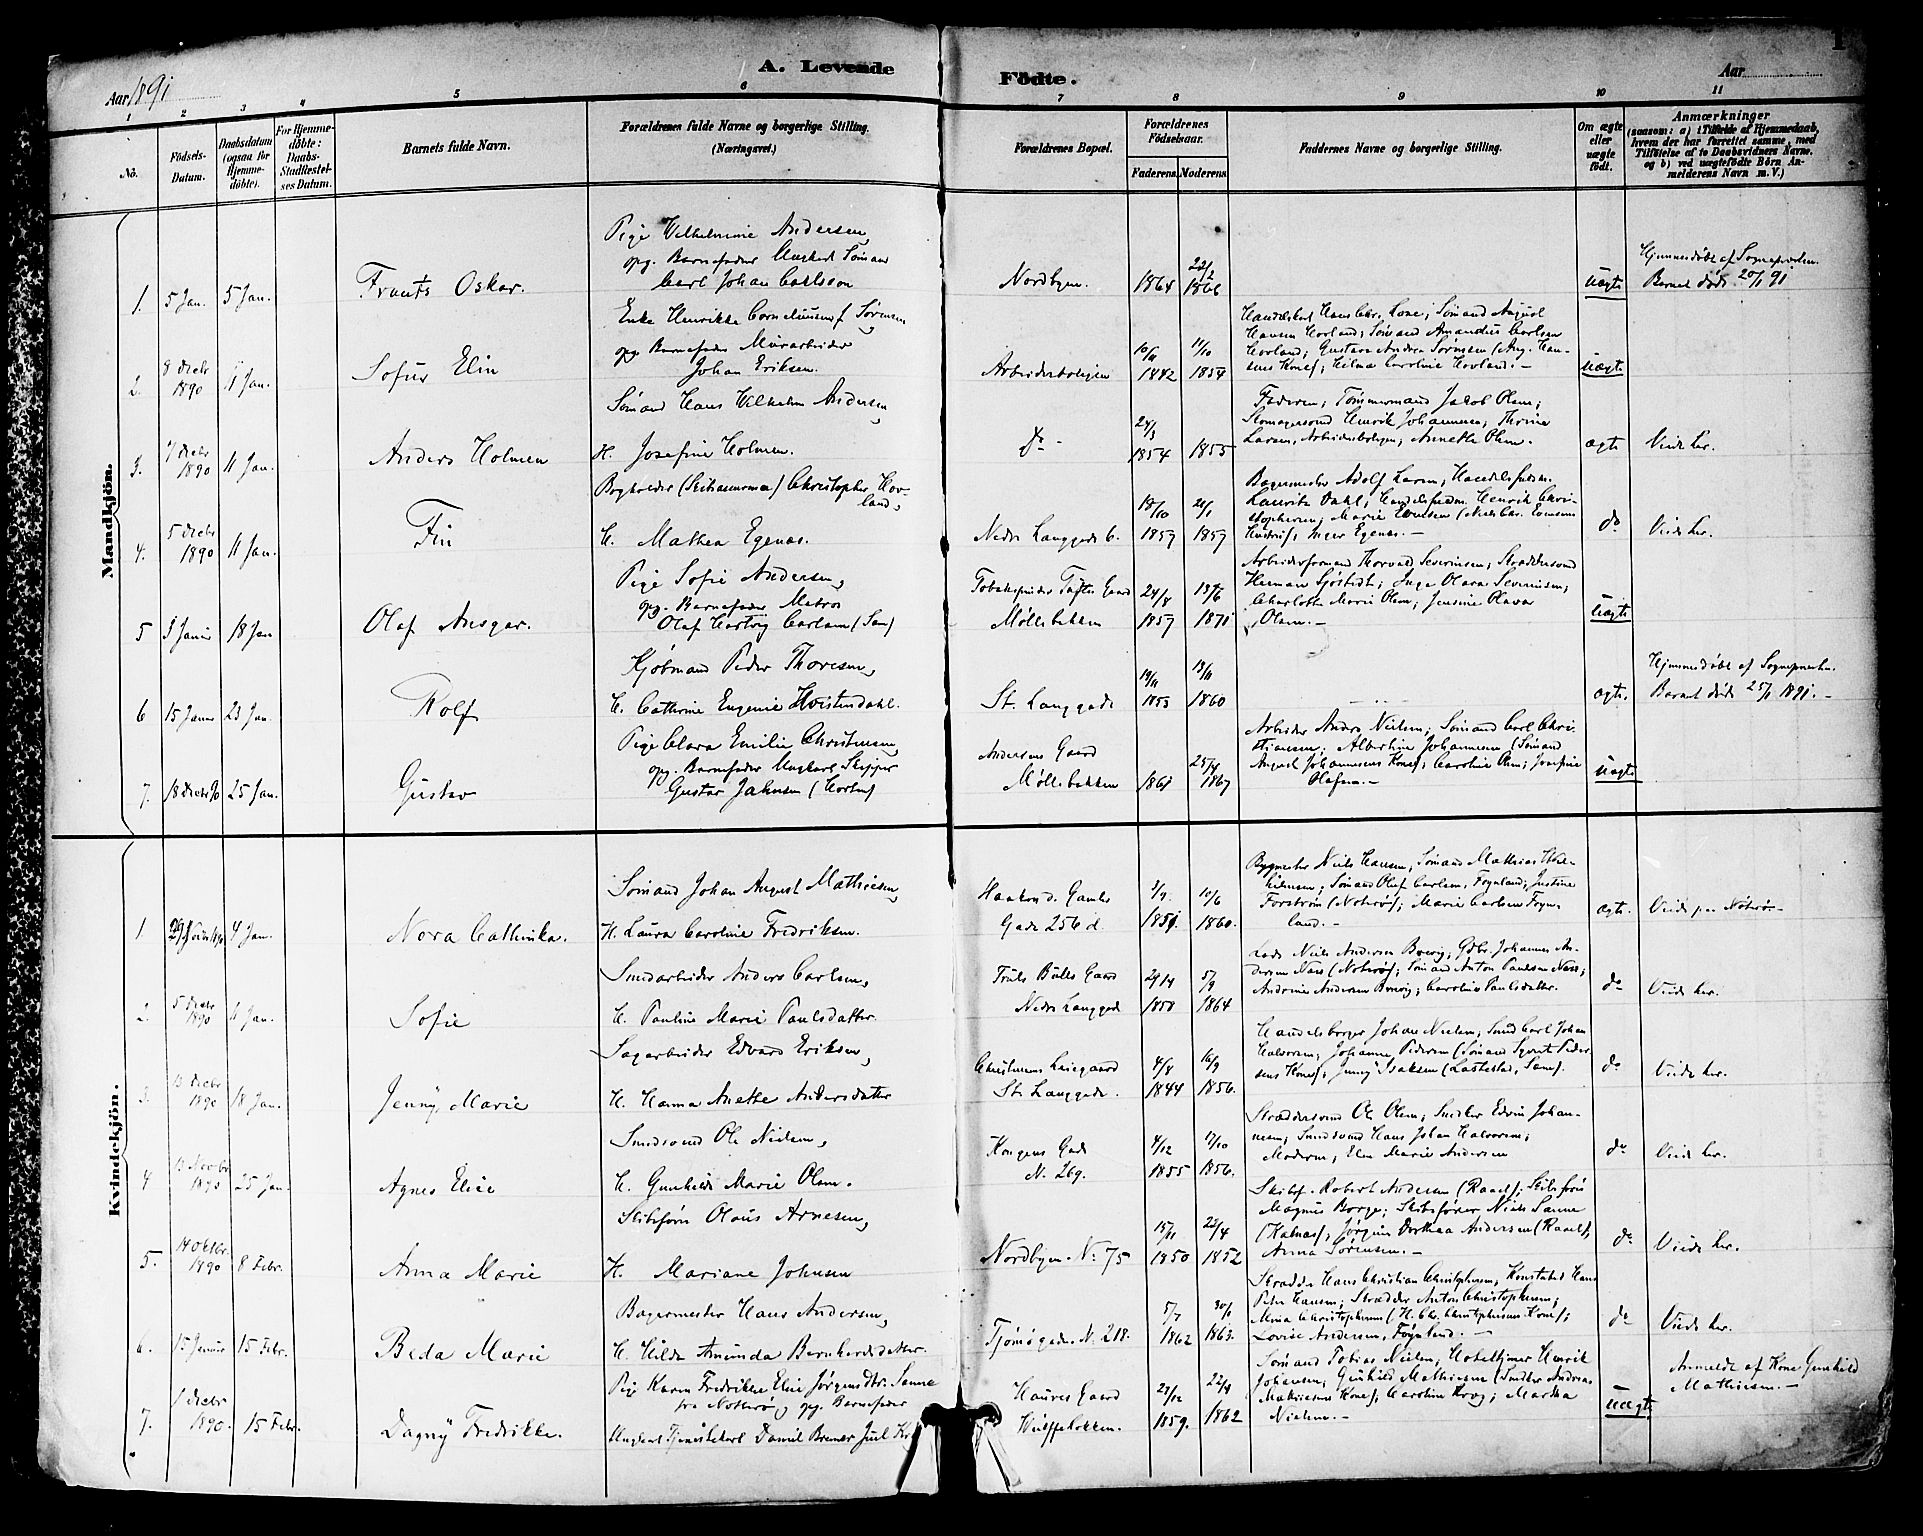 1
A. Levende Fødte.
Aar 1891
Aar
1 2 3 4 5 6 7 8 9 10 11
No.
Fødsels-
Datum.
Daabsdatum
(ogsaa for
Hjemme-
døbte).
For Hjemme-
døbte:
Daabs-
Stadfæstel-
ses Datum.
Barnets fulde Navn.
Forældrenes fulde Navne og borgerlige Stilling.
(Næringsvei.)
Forældrenes Bopæl.
Forældrenes
Fødselsaar.
Faderens. Moderens.
Faddernes Navne og borgerlige Stilling.
Om ægte
eller
uægte
født.
Anmærkninger
(saasom: a) i Tilfælde af Hjemmedaab,
hvem der har forrettet samme, med
Tilføielse af to Daabsvidners Navne,
og b) ved uægtefødte Børn An-
melderens Navn m. V.)
Mandkjøn.
1. 5 Jan. 5 Jan.
Frants Oskar.
Pige Wilhelmine Andersen
opg. Barnefader Ungkarl Sømand
Carl Johan Carlsson
Nordbyen.
1864
22/2
1866
uægte
Hjemmedøbt af Sognepresten.
Barnet døde 20/1 91
2. 8 Decbr
1890 11 Jan.
Sofus Elin
Enke Henrikke Corneliussen f. Sørensen
opg. Barnefader Murarbeider
Johan Eriksen.
Arbeiderboligen
10/11
1842
11/10
1854
Hansen Hovland; Sømand Amandus Carlsen
Hovland; Gustava Andrea Sørensen (Aug. Han-
sens Kone); Hilma Caroline Hovland. -
uægte
3. 7 Decbr
1890 11 Jan.
Anders Holmen
Sømand Hans Wilhelm Andersen
H. Josefine Holmen.
do -
24/3
1854 1855
Faderen; Tømmermand Jakob Olsen;
Skomagersvend Henrik Johannessen; Thrine
Larsen, Arbeiderboligen; Annette Olsen.
ægte
Viede her.
4. 5 Decbr
1890 11 Jan.
Fin
Bogholder (Skibsnummer) Christopher Hov-
land,
H. Mathea Egenæs.
Nedre Langgade 6.
18/10
1857
21/1
1857
Bagermester Adolf Larsen; Handelsfuldm.
Lauritz Dahl; Handelsfuldm. Henrik Chri-
stophersen; Marie Evensen
Inger Egenæs. -
do
Viede her.
5 18 Jan
Olaf Ansgar.
Pige Sofie Andersen,
opg. Barnefader Matros
Olaf Hartvig Carlsen
Møllebakken
24/8
1857
13/6
1871
Arbeidsformand Thorvald Severinsen; Skræddersvend
Herman Sjøstedt; Inga Olava Severinsen;
Charlotte Marie Olsen; Jensine Olava
Olsen. -
uægte
6 15 Januar 23 Jan
Rolf
Kjøbmand Peder Thoresen,
H. Cathrine Eugenie Hvistendahl.
St. Langgade
19/11
1853
13/11
1860
ægte.
Hjemmedøbt af Sognepresten.
Barnet døde 25/1 1891. -
7. 18 Decbr 90 25 Jan.
Gustav
Pige Clara Emilie Christensen,
opg. Barnefader Ungkarl Skipper
Gustav Jahnsen (Horten)
Andersens Gaard
Møllebakken
1861
25/4
1867
Arbeider Anders Nielsen; Sømand Carl Chri-
stiansen; Albertine Johannessen (Sømand
August Johannessens Kone); Caroline Olsen; Josefine
Olafsen. -
uægte
Kvindekjøn.
1 4 Jan.
Nora Cathinka.
Sømand Johan August Mathiesen,
H. Laura Caroline Fredriksen.
Haakon d. Gamles
Gade 256 d.
3/9
1859.
10/6
1860.
Bygmester Niels Hansen; Sømand Mathias
Sømand Olaf Carlsen, Føynland; Justine
Forstrøm (Nøtterø); Marie Carlsen Føyn-
land. -
ægte.
Viede paa Nøtterø. -
2. 5 Decbr
1890 11 Jan.
Sofie
Smedarbeider Anders Carlsen,
H. Pauline Marie Paulsdatter.
Truls Bulls Gaard
Nedre Langgade
29/4
1858
5/9
1864
Lods Niels Andersen Brevig; Gdbr. Johannes An-
dersen Næs (Nøtterø); Sømand Anton Paulsen Næs;
Andrine Andersen Brevig; Caroline Paulsdatter.
do
Viede her.
3. 13 Decbr
1890 18 Jan.
Jenny Marie
Sagarbeider Edvard Eriksen,
H. Hanna Anette Andersdatter
St. Langgade.
4/8
1844
16/9
1856.
Handelsborger Johan Nielsen; Smed Carl Johan
Halvorsen; Johanne Pedersen (Sømand Syvert Peder-
sens Kone); Jenny Isaksen
do
Viede her.
4 13 Novbr
1890 25 Jan.
Agnes Elise
Smedsvend Ole Nielsen,
H. Gunhilde Marie Olsen.
Kongens Gade
N. 269.
4/12
1855
17/10
1856.
Skræddersvend Ole Olsen; Snedker Edvin Johan-
nesen; Smedsvend Hans Johan Halvorsen;
Moderen; Elen Marie Andersen
do
Viede her.
5. 14 Oktbr.
1890 8 Febr.
Anna Marie
Skibsfører Olaus Arnesen,
H. Mariane Johnsen
Nordbyen N: 75
15/11
1850
22/4
1852
Skibsf. Robert Andersen (Raael); Skibsfører
Magnus Borge; Skibsfører Niels Sanne
(Kalnæs); Jørgine Dorthea Andersen (Raael);
Anna Sørensen. -
do
Viede her.
6. 15 Januar 15 Febr.
Beda Marie
Bagermester Hans Andersen,
H. Hilda Amunda Bernhardsdatter.
Tjømøgade N: 218.
5/7
1862
30/1
1863.
Skrædder Hans Christian Christophersen; Konstabel Hans
Peter Hansen; Skrædder Anton Christophersen;
Mina Christophersen (H. Chr. Christophersens Kone);
Lovise Andersen, Føynland. -
do
Viede her.
7. 1 Decbr
1890. 15 Febr.
Dagny Fredrikke.
Pige Karen Fredrikke Elise Jørgensdtr. Sanne
fra Nøtterø, opg. Barnefader
Ungkarl Tjenestekarl Daniel Bremer Juul
Haures Gaard
23/12
1859.
22/4
1862
Sømand Tobias Nielsen; Hoteltjener Henrik
Johansen; Gunhild Mathiesen (Snedker Andreas
Mathiesens Kone); Caroline Krog; Martha
Nielsen. -
uægte
Anmeldt af Kone Gunhild
Mathiesen. -